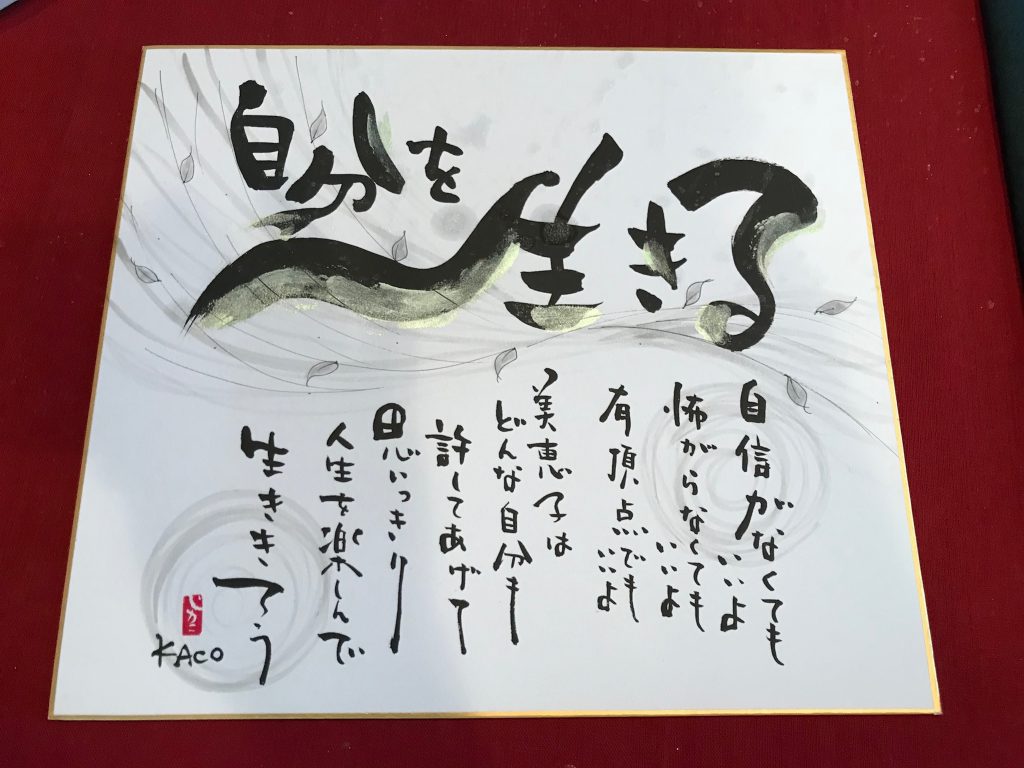 自分を生きる
自信がなくても
いいよ
怖がらなくても
いいよ
有頂点でも
いいよ
美恵子は
どんな自分も
許してあげて
思いっきり
人生を楽しんで
生ききろう
KACO